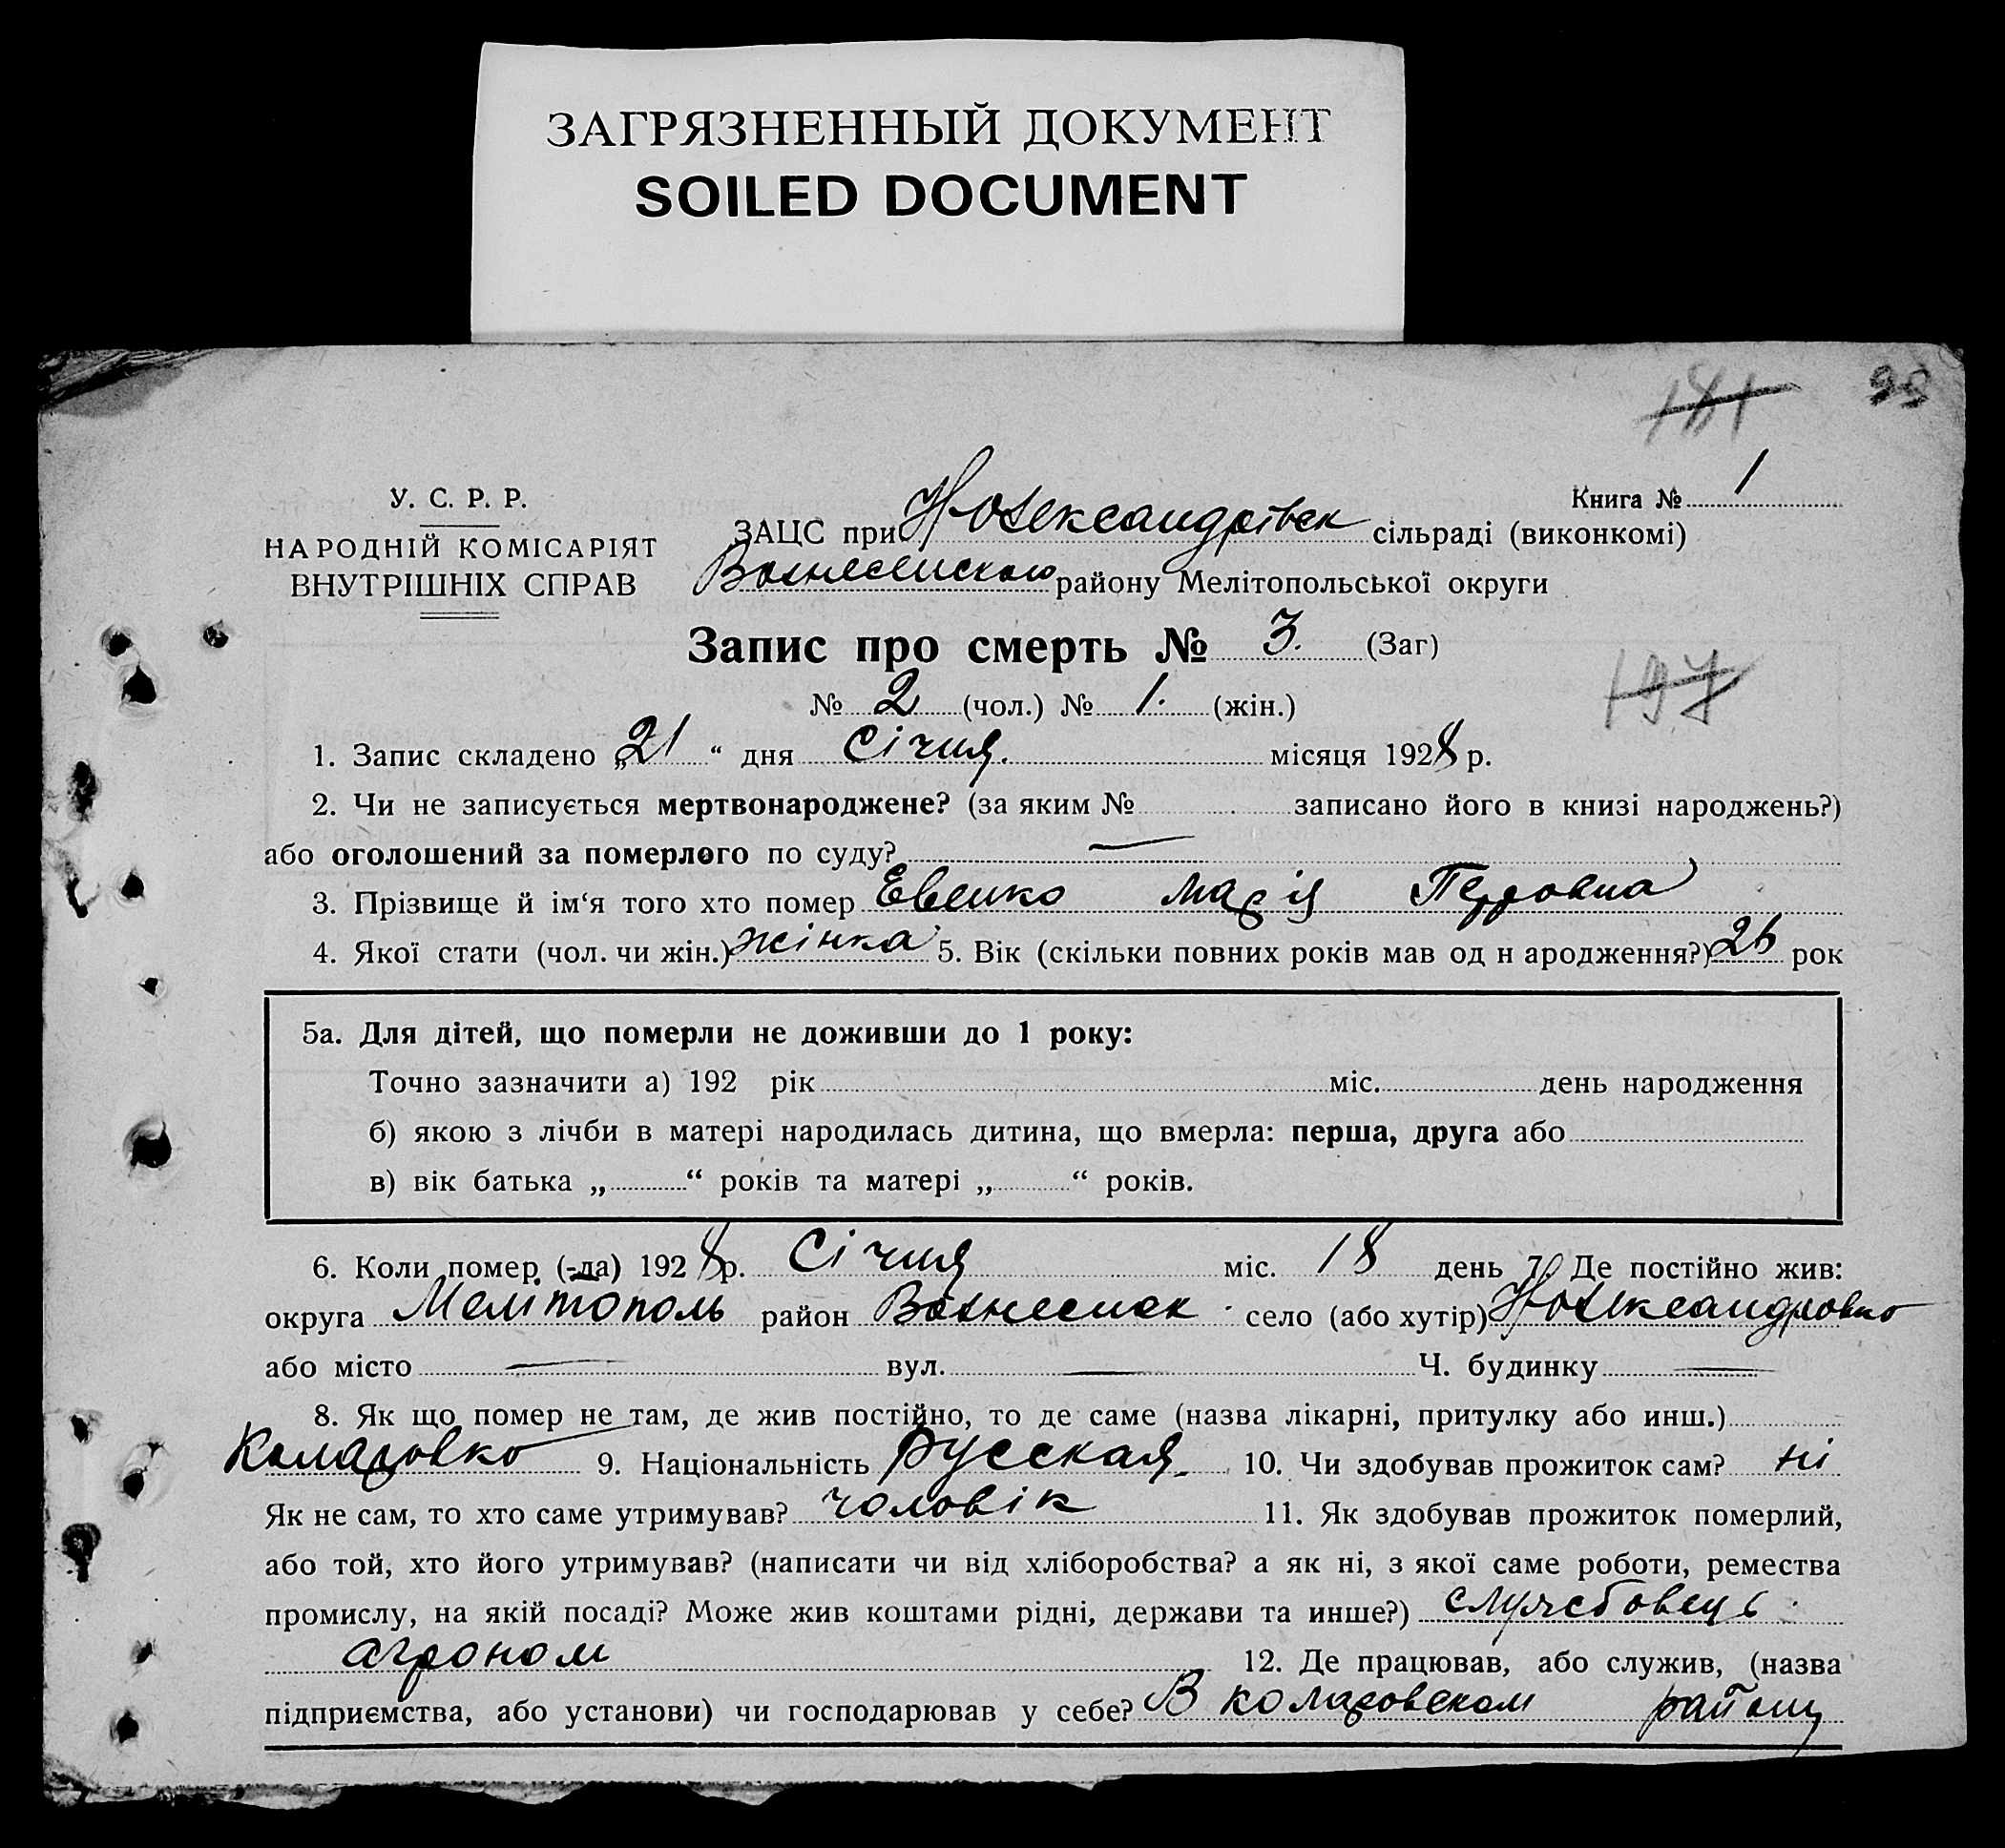 ЗАГРЯЗНЕННЫЙ ДОКУМЕНТ
SOILED DOCUMENT
181 99
У. С. Р. Р.
НАРОДНІЙ КОМІСАРІЯТ
ВНУТРІШНІХ СПРАВ
Книга № 1
ЗАЦС при Новлександрівск сільраді (виконкомі)
Вознесенского району Мелітопольської округи
Запис про смерть № 3. (Заг)
197
№ 2 (чол.) № 1. (жін.)
1. Запис складено „21“ дня Січня. місяця 1928 р.
2. Чи не записується мертвонароджене? (за яким № записано його в книзі народжень?)
або оголошений за померлого по суду? —
3. Прізвище й ім‘я того хто помер Евенко Марія Петровна
4. Якої стати (чол. чи жін.) жінка 5. Вік (скільки повних років мав од н ародження?) 26 рок
5а. Для дітей, що померли не доживши до 1 року:
Точно зазначити а) 192 рік міс. день народження
б) якою з лічби в матері народилась дитина, що вмерла: перша, друга або
в) вік батька „ “ років та матері „ “ років.
6. Коли помер (-ла) 1928 р. Січня міс. 18 день 7. Де постійно жив:
округа Мелітополь район Вознесенск село (або хутір) Новлександровко
або місто — вул. — Ч. будинку —
8. Як що помер не там, де жив постійно, то де саме (назва лікарні, притулку або инш.)
Коларовко 9. Національність русская 10. Чи здобував прожиток сам? ні
Як не сам, то хто саме утримував? чоловік 11. Як здобував прожиток померлий,
або той, хто його утримував? (написати чи від хліборобства? а як ні, з якої саме роботи, ремества
промислу, на якій посаді? Може жив коштами рідні, держави та инше?) служебовець
агроном 12. Де працював, або служив, (назва
підприємства, або установи) чи господарював у себе? В коларовском районі